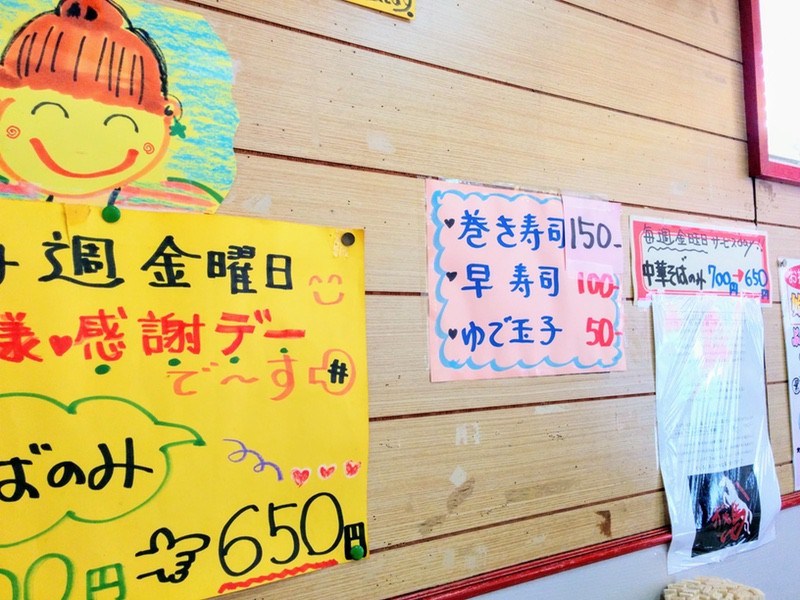 週 金曜日
様♥感謝デー
で～す
ばのみ
650円
00円
♥巻き寿司 150-
♥早寿司 100-
♥ゆで玉子 50-
毎週金曜日サービスday!
中華そばのみ 700円→650円